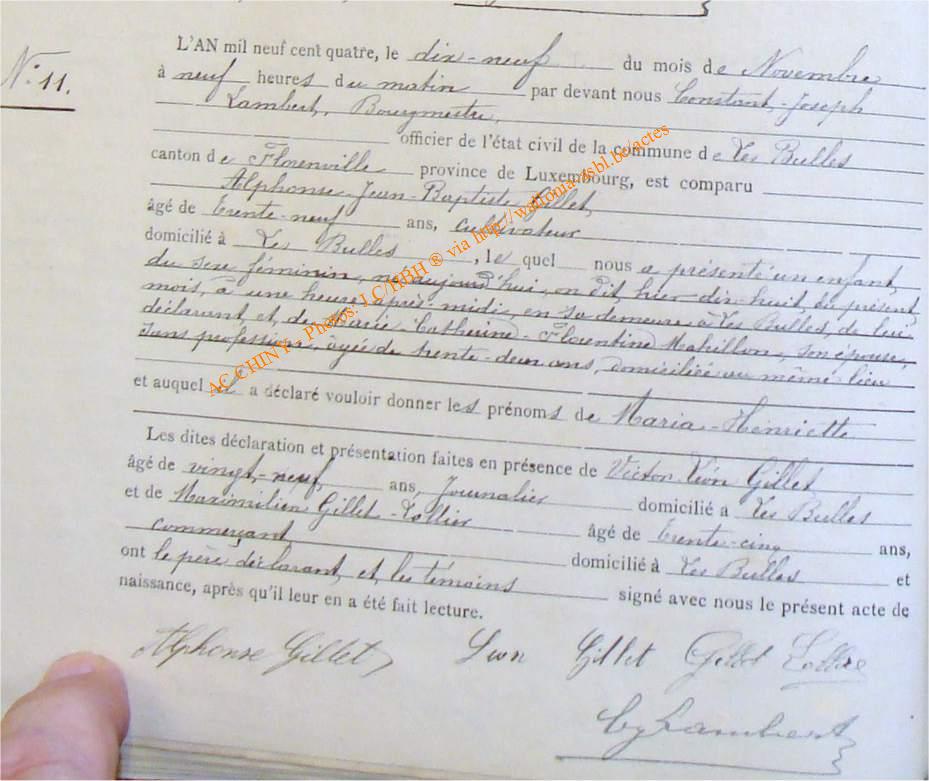 N° 11.
L'AN mil neuf cent quatre, le dix-neuf du mois de Novembre
à neuf heures du matin par devant nous Constant-Joseph
Lambert, Bourgmestre,
officier de l'état civil de la commune de Les Bulles
canton de Florenville province de Luxembourg, est comparu
Alphonse Jean-Baptiste Gillet,
âgé de trente-neuf ans, cultivateur
domicilié à Les Bulles, lequel nous a présenté un enfant
du sexe féminin, né aujourd'hui, on dit, hier dix-huit du présent
mois, à une heure après-midi, en sa demeure à Les Bulles, de lui
déclarant et de Marie Catherine-Florentine son épouse,
sans profession, âgée de trente-deux ans, domiciliée au même lieu
et auquel il a déclaré vouloir donner les prénoms de Maria-Henriette
Les dites déclaration et présentation faites en présence de Victor Léon Gillet
âgé de vingt-neuf ans, Journalier domicilié à Les Bulles
et de Maximilien Gillet-Zollier âgé de trente-cinq ans,
commerçant domicilié à Les Bulles et
ont le père déclarant et les témoins signé avec nous le présent acte de
naissance, après qu'il leur en a été fait lecture.
Alphonse Gillet Léon Gillet Gillet
CJ Lambert
AC CHINY - Photos: J.C/HBH ® via http://wallonia-asbl.be/actes